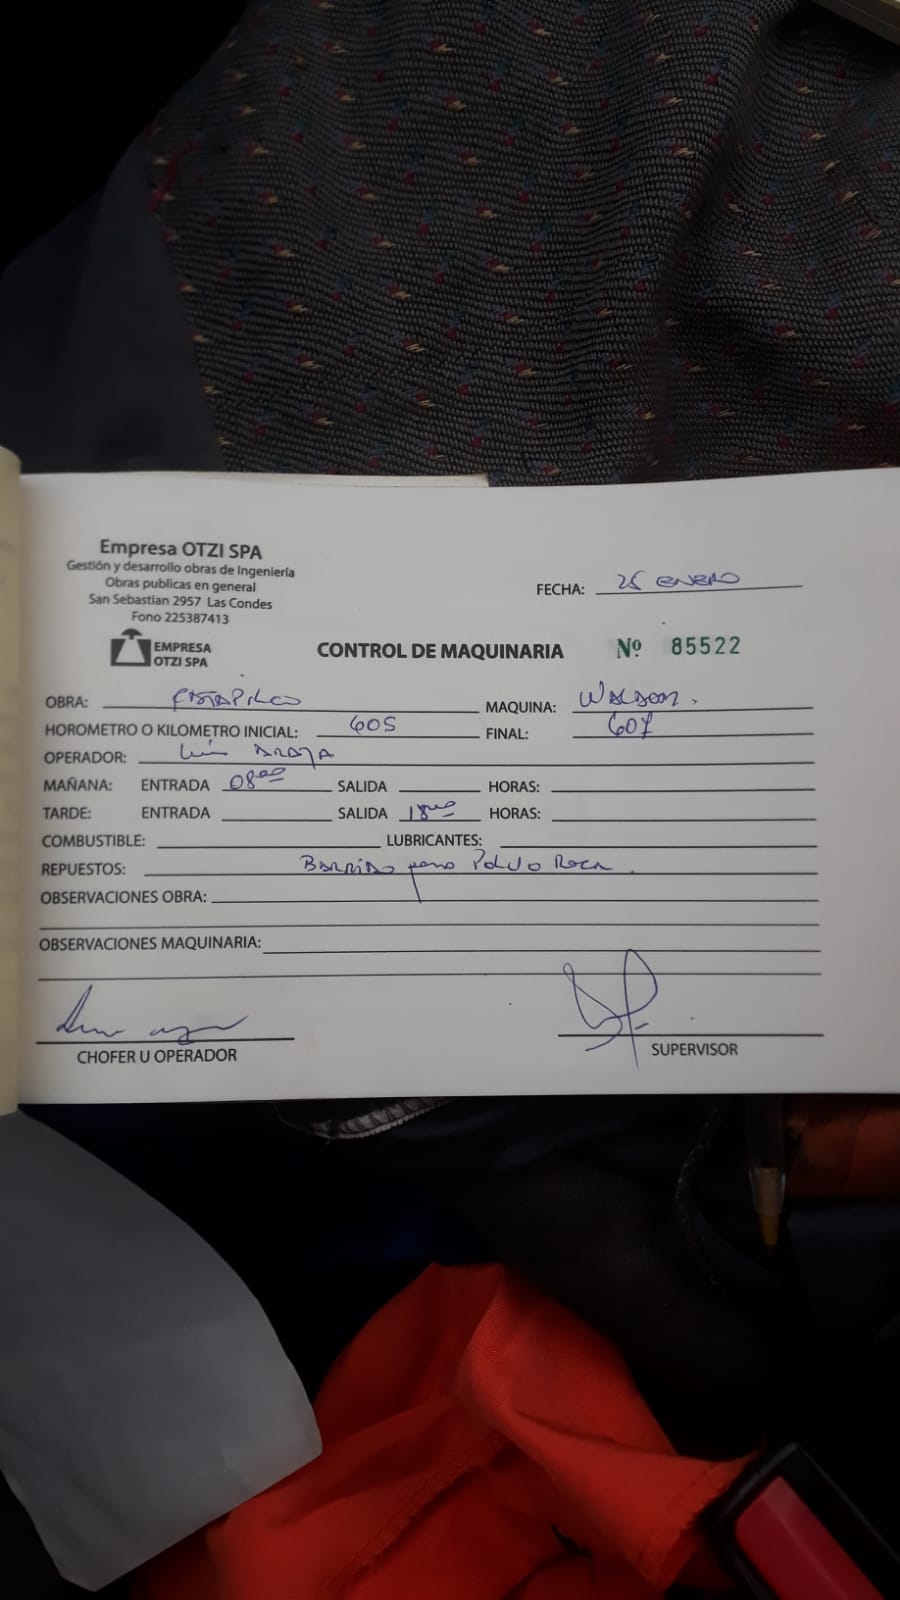 Empresa OTZI SPA
Gestión y desarrollo obras de Ingeniería
Obras publicas en general
San Sebastian 2957 Las Condes
Fono 225387413
EMPRESA
OTZI SPA
FECHA: 25 ENERO
CONTROL DE MAQUINARIA Nº 85522
OBRA: CATAPILCO MAQUINA: WALDON.
HOROMETRO O KILOMETRO INICIAL: 605 FINAL: 607
OPERADOR: Luis ARAYA
MAÑANA: ENTRADA 08:00 SALIDA HORAS:
TARDE: ENTRADA SALIDA 18:00 HORAS:
COMBUSTIBLE: LUBRICANTES:
REPUESTOS: BARRIDO para Polvo Roca.
OBSERVACIONES OBRA:
OBSERVACIONES MAQUINARIA:
CHOFER U OPERADOR
SUPERVISOR